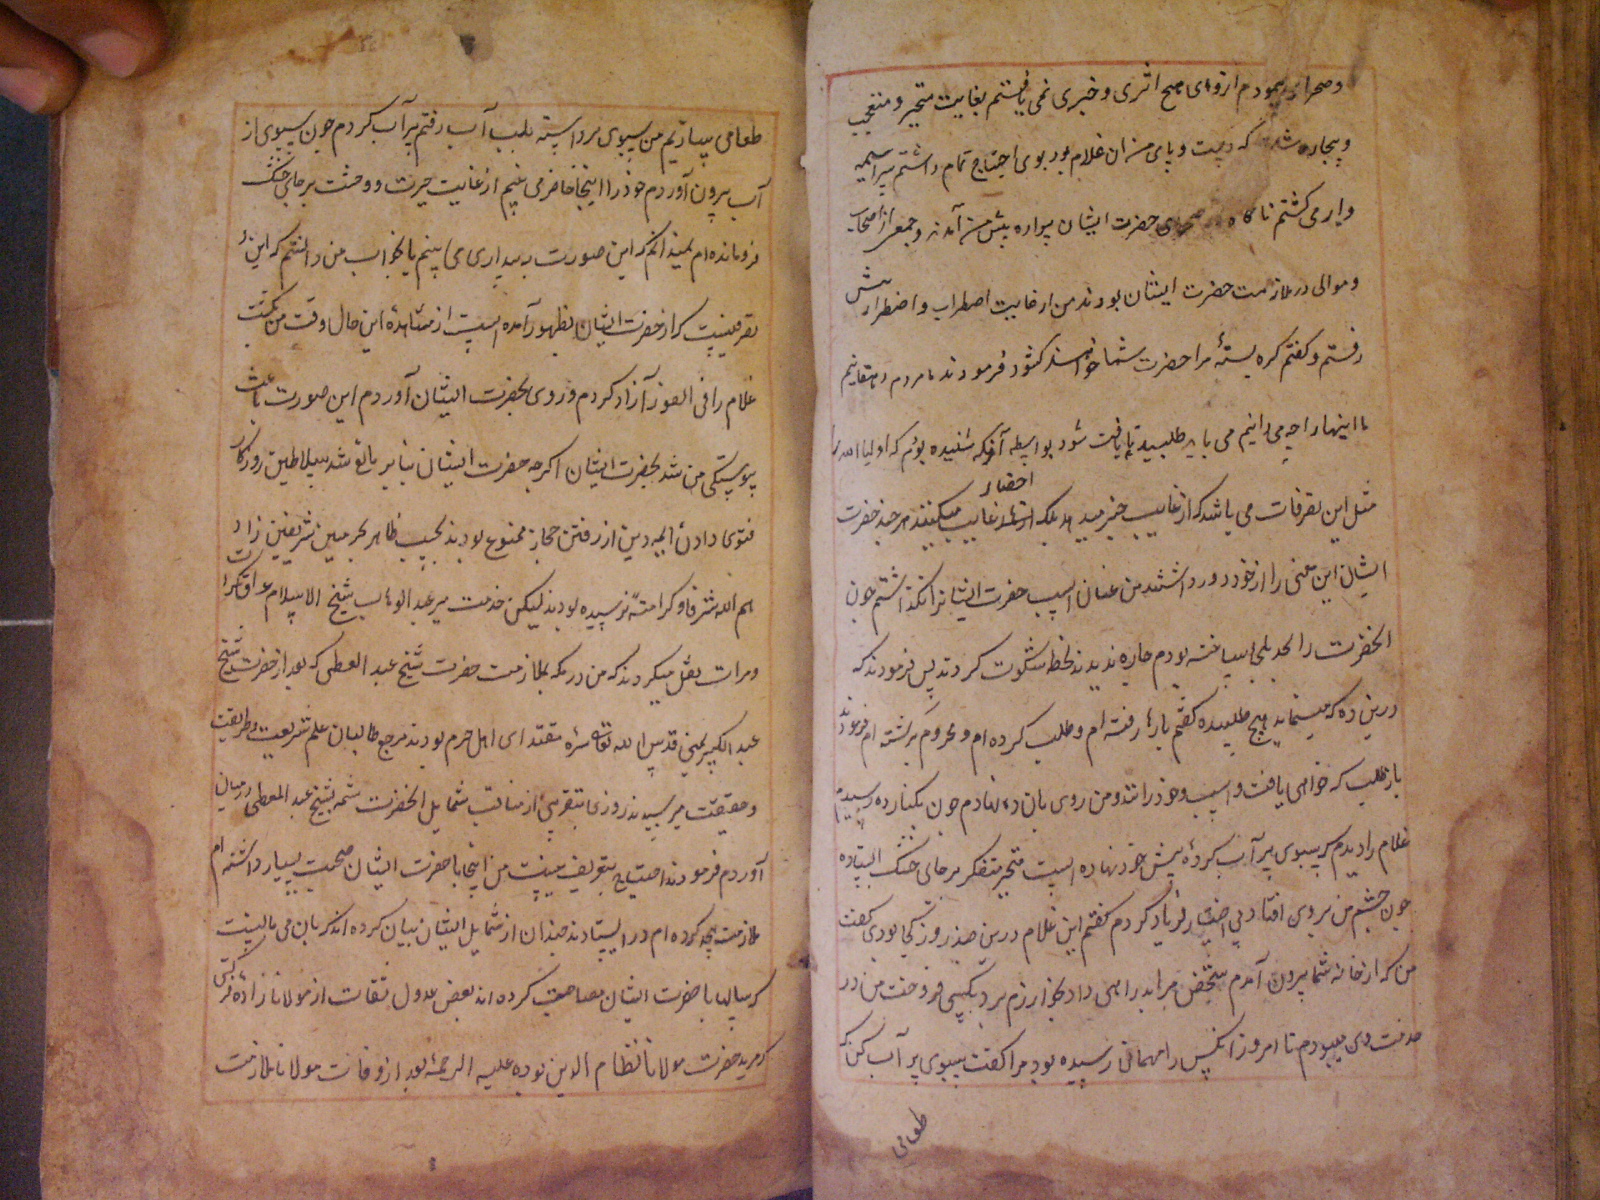 و صحرا می‌پیمودم از وی هیچ اثری و خبری نمی یافتم بغایت متحیر و متعجب
و بیچاره شدم که دست و پای من آن غلام بود بوی احتیاج تمام داشتم سراسیمه
وار می گشتم ناگاه حضرت ایشان سواره پیش من آمدند و جمعی از اصحاب
و موالی در ملازمت حضرت ایشان بودند من از غایت اضطراب و اضطرار پیش
رفتم و گفتم گره بستهٔ مرا حضرت شما خواهند گشود فرمودند ما مردم دهقانیم
ما اینها را چه می دانیم می باید طلبید تا یافت شود بواسطه آنکه شنیده بودم که اولیاء الله را
مثل این تصرفات می باشد که از غایب خبر میدهند بلکه احضار غایب میکنند هر چند حضرت
ایشان این معنی را از خود دور داشتند من عنان اسب حضرت ایشانرا نگذاشتم چون
آنحضرت را بحد بلجا ساخته بودم چاره ندیدند لحظه سکوت کردند پس فرمودند که
درین ده که مینماید هیچ طلبیده گفتم بارها رفته ام و طلب کرده ام و محروم برگشته ام فرمودند
باز طلب که خواهی یافت و اسب خود را راندند و من روی بان ده نهادم چون بکنار ده رسیدم
غلام را دیدم که سبوی پر آب کرده پیش خود نهاده است متحیر متفکر بر جای خشک ایستاده
چون چشم من بر وی افتاد بی اختیار فریاد کردم گفتم این غلام درین چند روز کجا بودی گفت
من که از خانه شما بیرون آمدم شخصی مرا بدراهی داد بخوارزم برد بکسی فروخت من در
خدمت وی می‌بودم تا امروز آنکس را مهمانی رسیده بود مرا گفت سبوی پر آب کن که
طعامی
طعامی بسازیم من سبوی برداشته بلب آب رفتم پر آب کردم چون سبوی از
آب بیرون آوردم خود را اینجا حاضر می بینم از غایت حیرت و وحشت بر جای خشک
فرومانده ام نمیدانم که این صورت به بیداری می بینم یا بخواب من دانستم که این
تصرفیست که از حضرت ایشان بظهور آمده است از مشاهدهٔ این حال وقت من بگشت
غلام را فی الفور آزاد کردم و روی بحضرت ایشان آوردم این صورت باعث
پیوستگی من شد بحضرت ایشان اگرچه حضرت ایشان بنابر مانع شدن سلاطین روزگار
فتوی دادن ایمه دین از رفتن حجاز ممنوع بودند بحسب ظاهر بحرمین شریفین زاد
هم الله شرفا و کرامة نرسیده بودند لیکن خدمت میر عبد الوهاب شیخ الاسلام عراق کرات
و مرات نقل میکردند که من در مکه بملازمت حضرت شیخ عبد المعطی که بعد از حضرت شیخ
عبد الکبیر یمنی قدس الله تعالی سره مقتدای اهل حرم بودند مرجع طالبان علم شریعت و طریقت
و حقیقت میرسیدند روزی بتقریبی از مناقب شمایل آنحضرت شمه بشیخ عبد المعطی در میان
آوردم فرمودند احتیاج بتعریف نیست من اینجا با حضرت ایشان صحبت بسیار داشته ام
ملازمت کرده ام در ایستادند چندان از شمایل ایشان بیان کرده اند که بان می مانست
که سالها با حضرت ایشان مصاحبت کرده اند بعضی عدول ثقات از مولانا زاده فرکتی
که مرید حضرت مولانا نظام الدین بوده علیه الرحمة بعد از وفات مولانا ملازمت